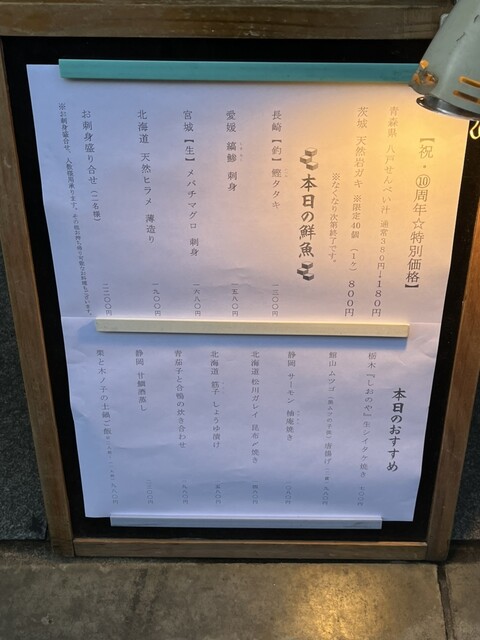 【祝・⑩周年☆特別価格】
青森県 八戸せんべい汁 通常380円↓180円
茨城 天然岩ガキ ※限定40個 (1ヶ) 800円
※なくなり次第終了です。
本日の鮮魚
長崎【釣】鰹タタキ 一三〇〇円
愛媛 縞鯵 刺身 一五八〇円
宮城【生】メバチマグロ 刺身 一六八〇円
北海道 天然ヒラメ 薄造り 一九〇〇円
お刺身盛り合せ(二名様) 二二〇〇円
※お刺身盛合せ、人数様用承ります。その他お持ち帰り可能なお料理もございます。
本日のおすすめ
栃木『しおのや』生シイタケ焼き 七〇〇円
銀ムツゴ 唐揚げ
静岡 サーモン 柚庵焼き
北海道 松川ガレイ 昆布〆焼き
北海道 筋子 しょうゆ漬け
青茄子と合鴨の炊き合わせ
静岡 甘鯛酒蒸し
栗と木ノ子の土鍋ご飯